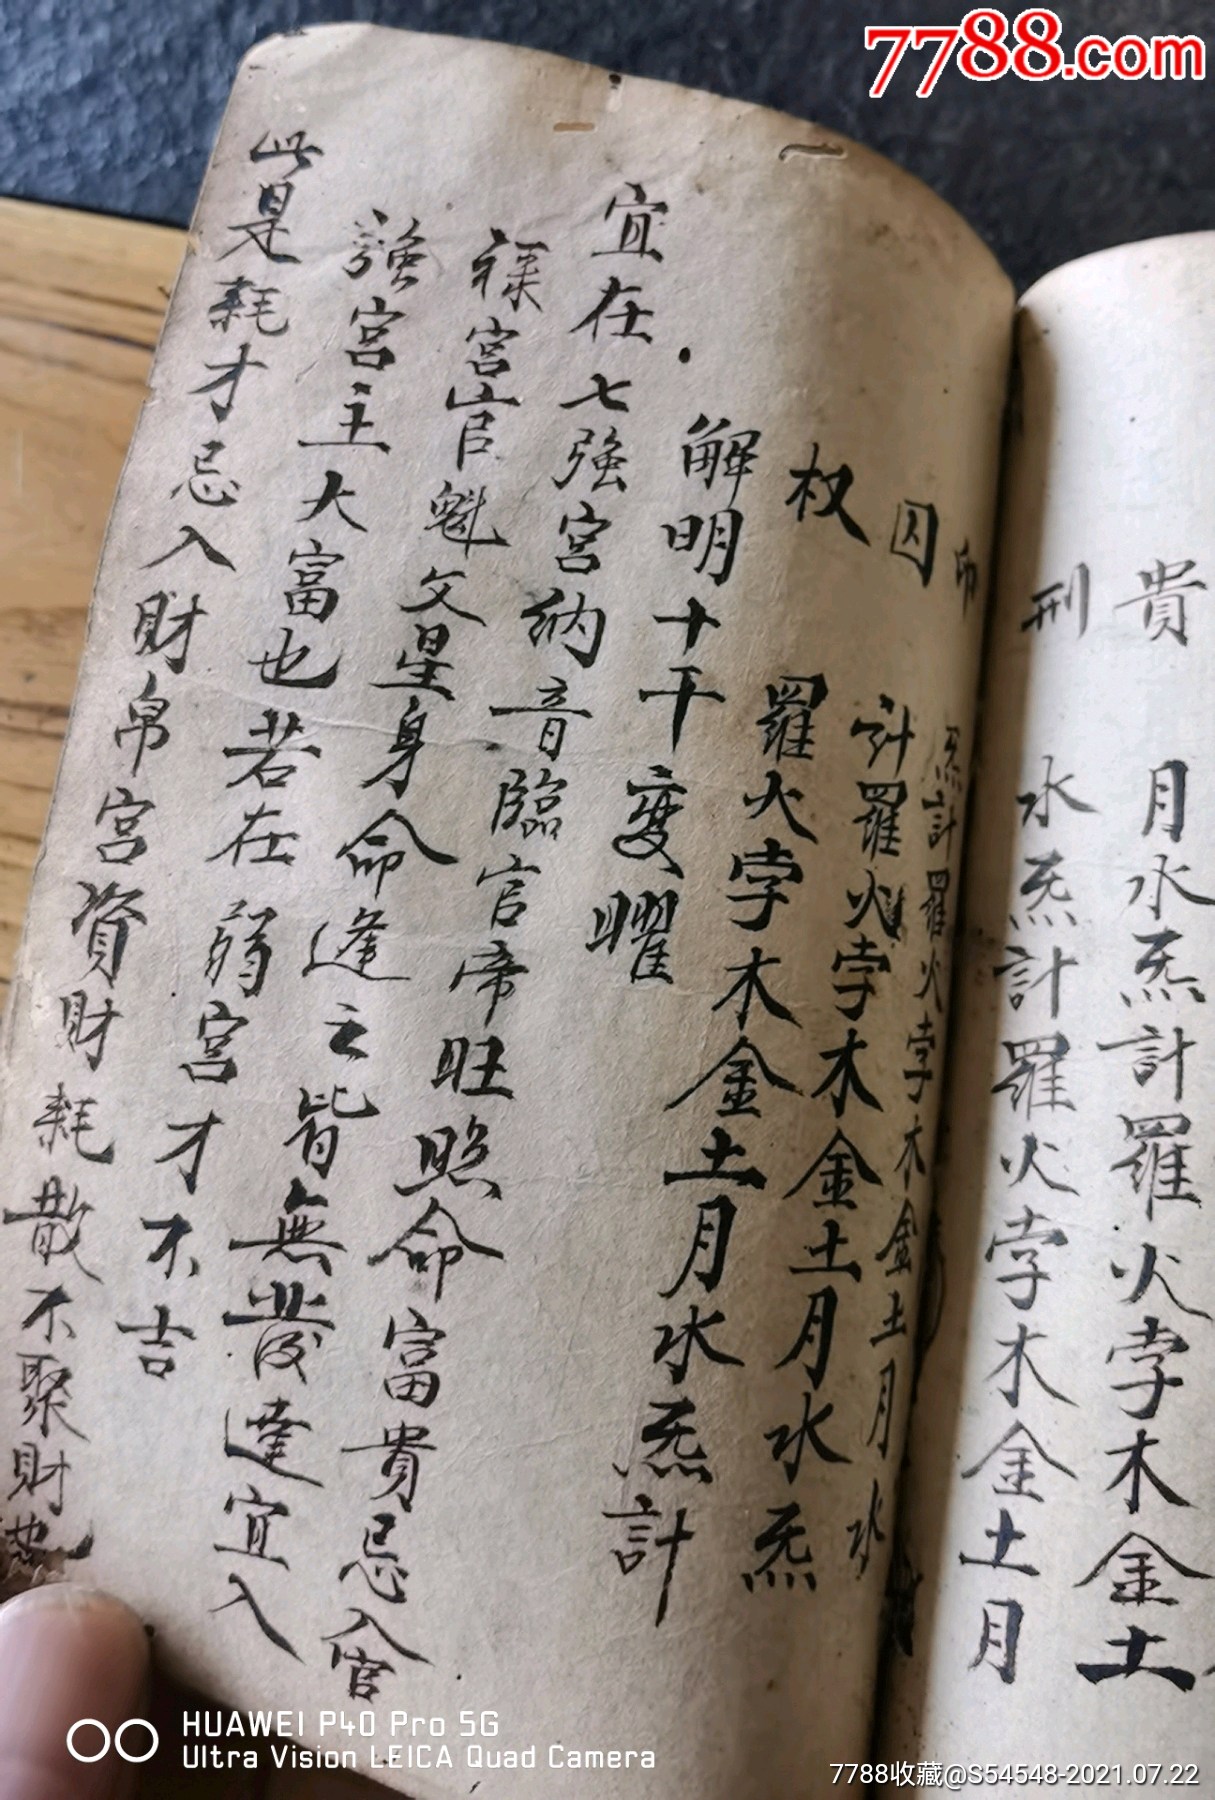 7788.com
貴 月水炁計羅火孛木金土
刑 水炁計羅火孛木金土月
印 炁計羅火孛木金土月水
囚 計羅火孛木金土月水炁
权 羅火孛木金土月水炁計
解明十干变曜
宜在七強宮納音臨官帝旺照命富貴忌入官
祿宮官魁文星身命逢之皆無發達宜入
強宮主大富也若在弱宮才不吉
此是耗才忌入財帛宮資財耗散不聚財也
HUAWEI P40 Pro 5G
Ultra Vision LEICA Quad Camera
7788收藏@S54548-2021.07.22